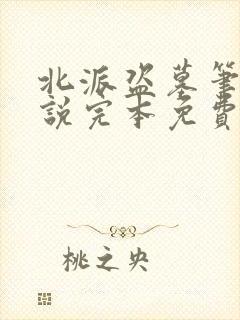 北派盗墓筆
說完本免費
桃之央